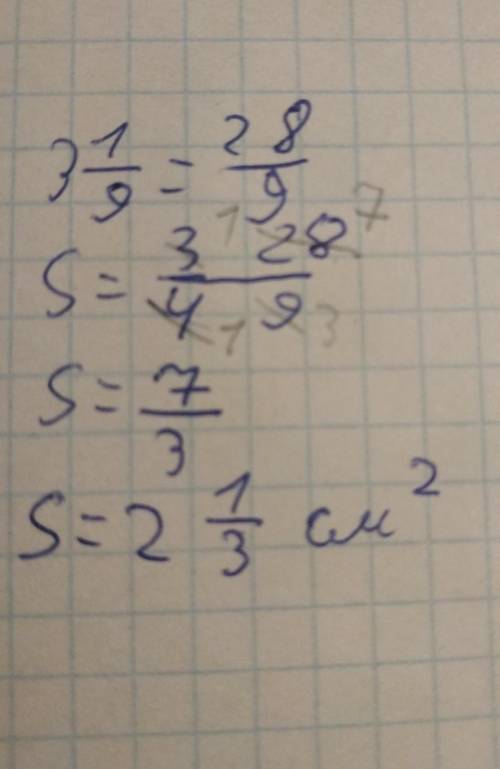 3 1/9 = 28/9
S = 3 1 28 7 / 4 1 9 3
S = 7/3
S = 2 1/3 см²